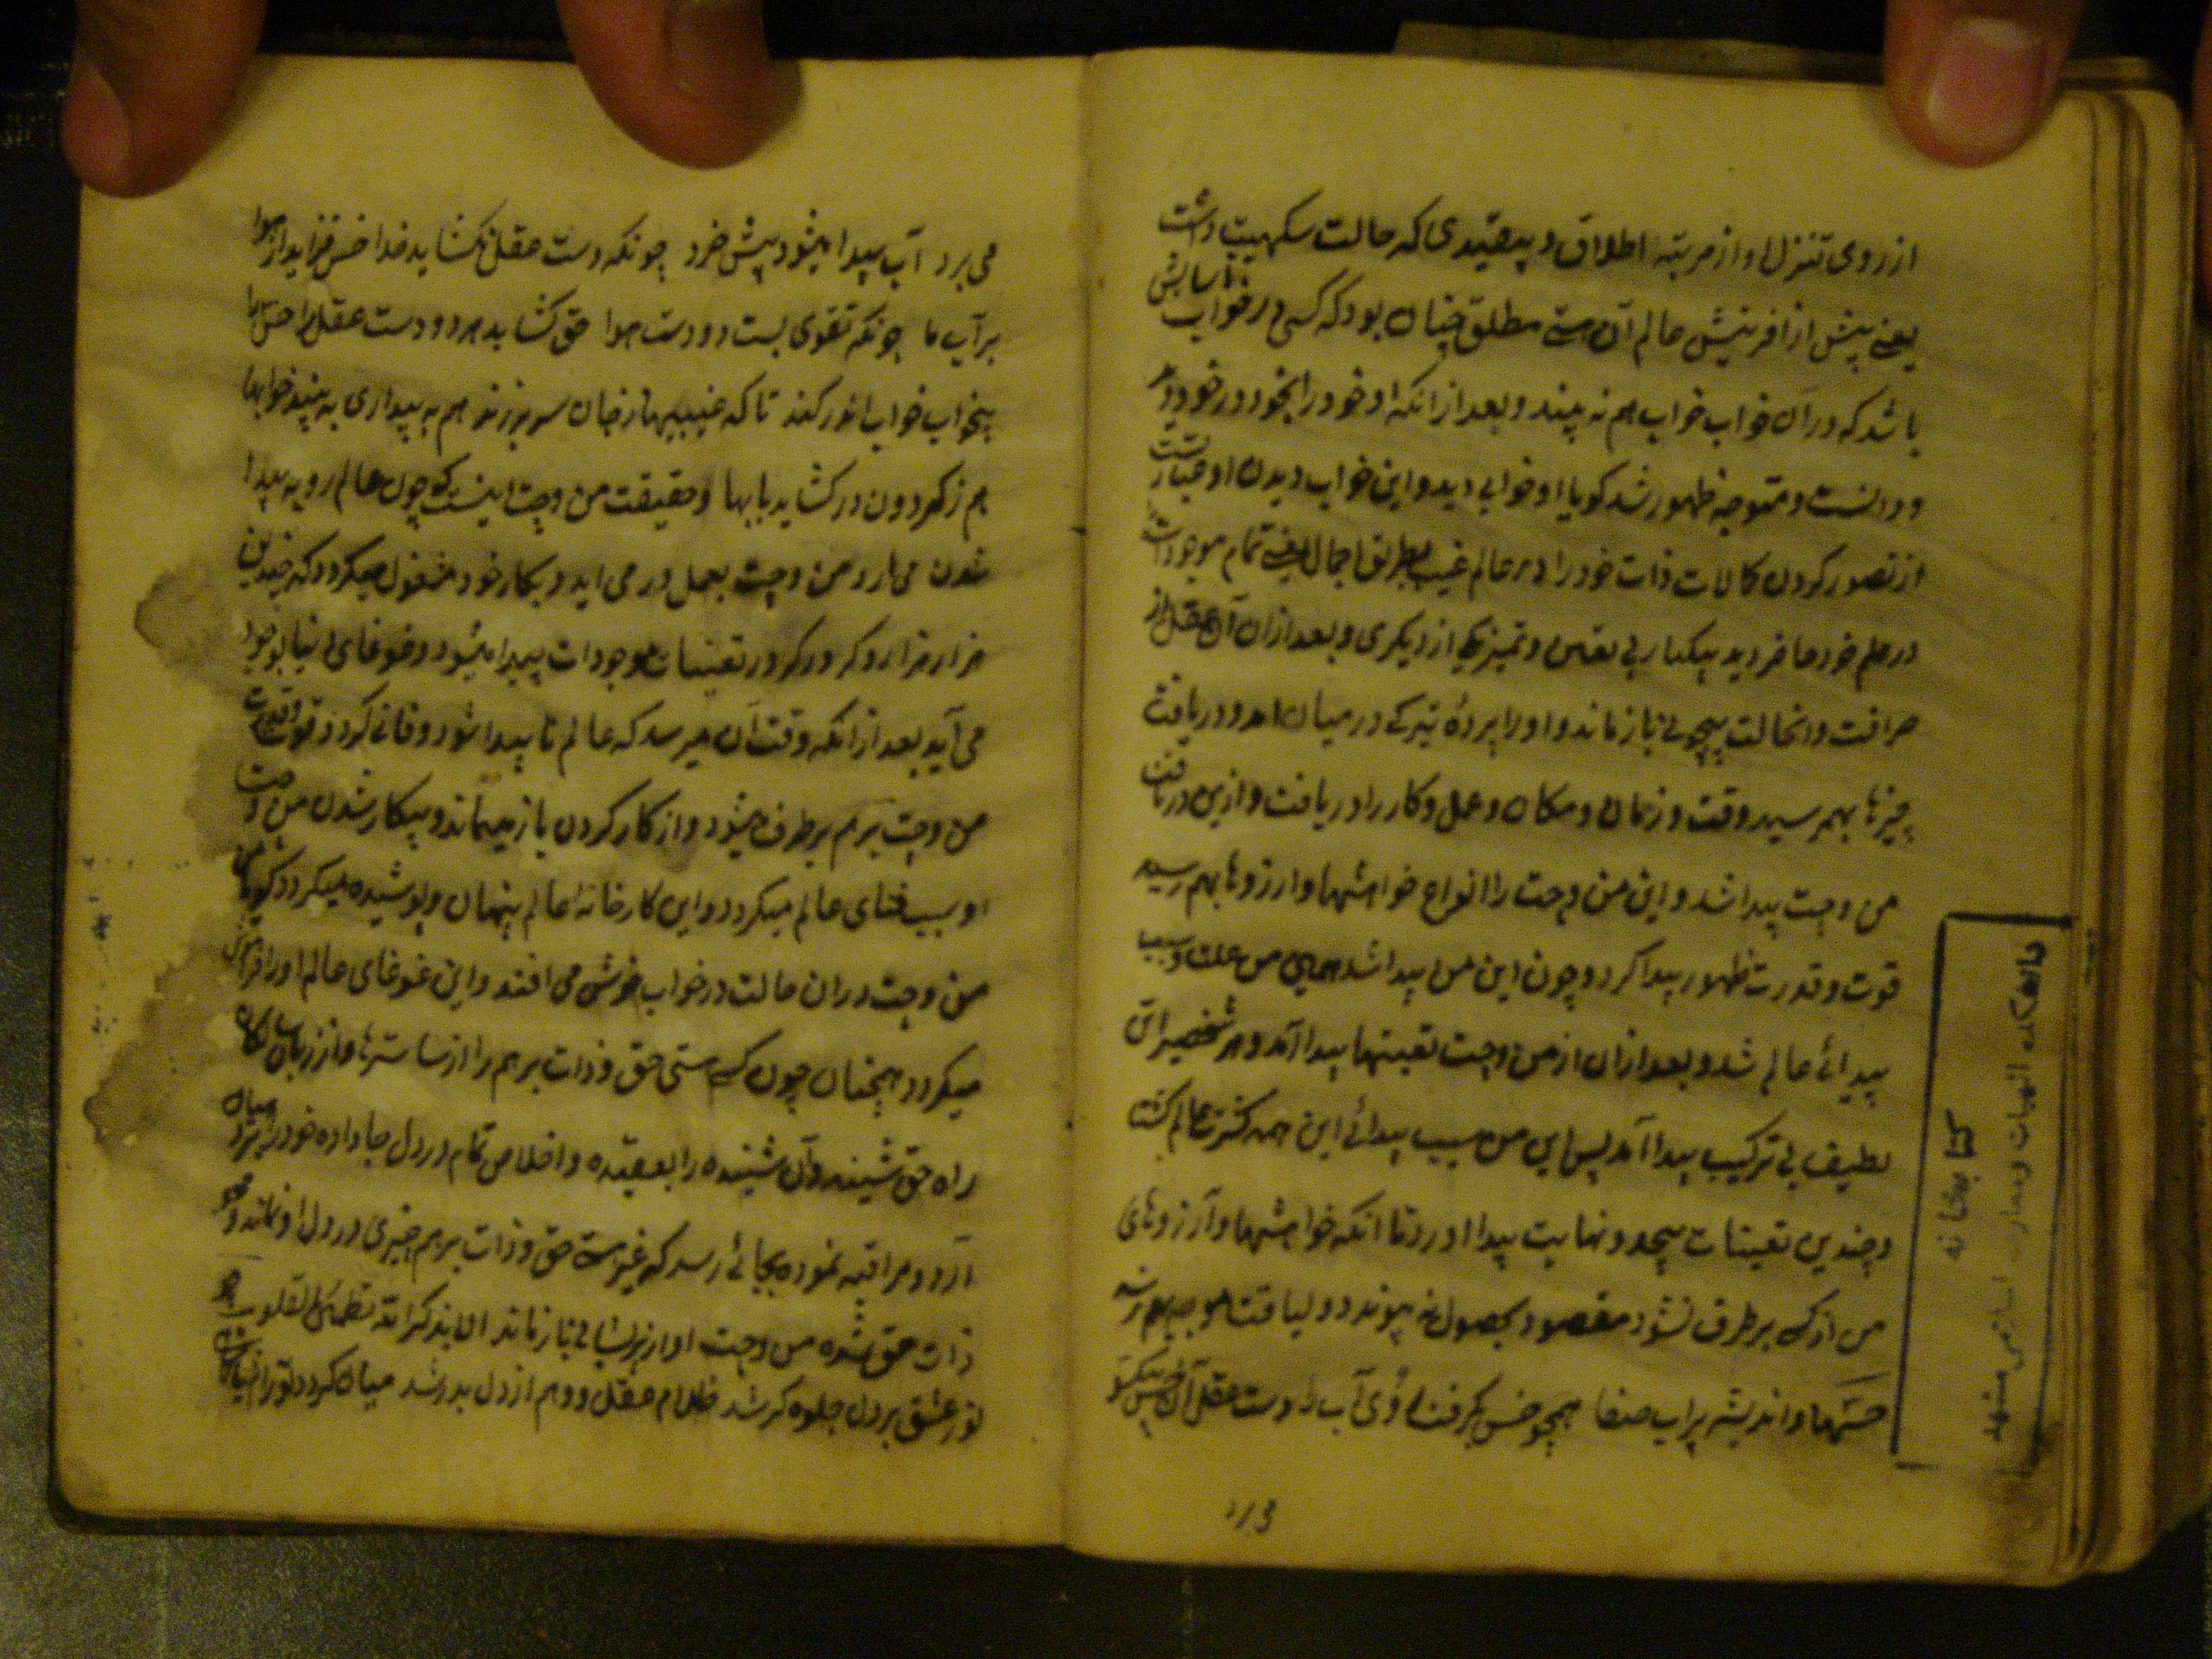 از روی تنزل او از مرتبه اطلاق و بیقیدی که حالت سکهپت داشت
یعنی پیش از افرینش عالم آن هستی مطلق چنان بود که کسی در خواب اسایش
باشد که در آن خواب خواب هم نه بیند و بعد از انکه او خود را بخود در خود دید
و دانست و متوجه ظهور شد کویا او خوابی دید و این خواب دیدن او عبارتست
از تصور کردن کالات ذات خود را در عالم غیب بطریق اجمال یعنی تمام موجودات
در علم خود یکی از دیکری و بعد از ان آن عقل از
صرافت و انحالت بیچونی باز ماند و او را پرده تیرکی در میان امد و دریافت
چیزها بهم رسید وقت و زمان و مکان و عمل و کار را دریافت و ازین دریافت
من وجت پیدا شد و این من وجت را انواع خواهشها و ارزوها بهم رسید
قوت و قدرت ظهور پیدا کرد و چون این من پیدا شد همین من علت و سبب
پیدائے عالم شد و بعد ازان از من وجت تعینها پیدا آمد و هر
لطیف بی ترکیب پیدا آمد پس این من سبب پیدائے این همه کثرت عالم کشت
و چندین تعینات بیحد و نهایت پیدا اورد تا انکه خواهشها و آرزوهای
من از کسی برطرف نشود مقصود بحصول نه پیوندد و لیاقت
حسها و اندیشه بر اب صفا همچو خس بکرفته روی آب را دست عقل آن خس بیکسو
می برد آب پیدا میشود پیش خرد چونکه دست عقل نکشاید خدا خس فزاید از هوا
بر آب ما چونکه تقوی بست دو دست هوا حق کشاید هر دو دست عقل را
بیخواب خواب کند تا که غیبیها ز جان سر بر زند هم به بیداری به بیند خوابها
هم ز کردون در کشاید بابها و حقیقت من وجت اینست که چون عالم رو به پیدا
شدن می ارد من وجت بعمل در می اید و بکار خود مشغول میکردد که چندین
هزار هزار و کرور کرور تعینات موجودات پیدا میشود و غوغای دنیا بوجود
می آید بعد از انکه وقت آن میرسد که عالم نا پیدا شود و فانی کردد
من وجت بر هم برطرف میشود و از کار کردن باز میماند و بیکار شدن من وجت
او سبب فنای عالم میکردد و این کارخانه عالم پنهان و پوشیده میکردد کویا
من وجت در ان حالت در خواب خوشی می افتد و این غوغای عالم او را
میکردد همچنان چون کسی هستی حق و ذات برهم را از ساسترها و از زبان
راه حق شنیده و آن شنیده را بعقیده و اخلاص تمام در دل جا داده خود را
آرد و مراقبه نموده بجائے رسد که غیر هستی حق و ذات برهم چیزی در دل او نماند و
ذات حق شده من وجت او از پریشانی باز ماند الا بذکر الله تطمئن القلوب
نور عشق بر دل جلوه کر شد ظلام عقل و وهم از دل بدر شد میان کرد
۱۱۳
کتابخانه
دانشکده الهیات و معارف اسلامی مشهد